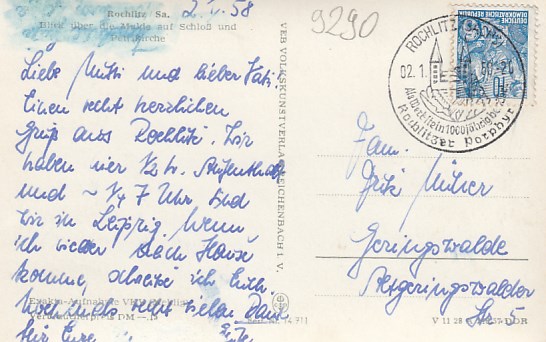 Rochlitz Sa.
Blick über die Mulde auf Schloß und
Petrikirche
58
9290
Liebe Mutti und lieber Vati!
Einen recht herzlichen
Gruß aus Rochlitz. Wir
haben hier 1/2 h. Aufenthalt
und ~ 1/4 7 Uhr sind
wir in Leipzig. Wenn
ich wieder nach Hause
komme, schreibe ich Euch.
recht vielen Dank
für Eure
VEB VOLKSKUNSTVERLAG REICHENBACH I. V.
ROCHLITZ (SACHS)
02.1. 58-20
Als Werkstein 1000 jährig bewährt
Rochlitzer Porphyr
DEUTSCHE
DEMOKRATISCHE REPUBLIK
10
Fam.
Fritz
Geringswalde
Altgeringswalder
Str. 5
DM
V 11 28 DDR